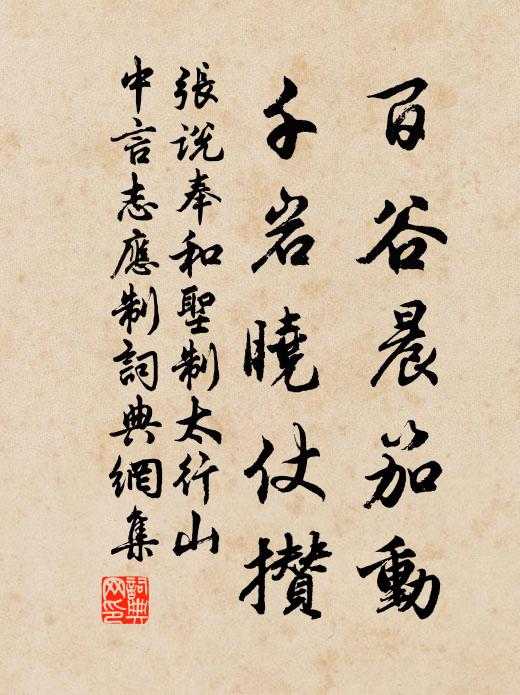 百谷晨笳動
千岩曉仗攅
張說奉和聖制太行山
中言志應制詞典網集
詞典
网印